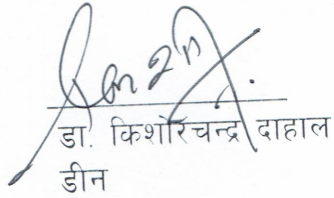 डा. किशोरचन्द्र दाहाल
डीन